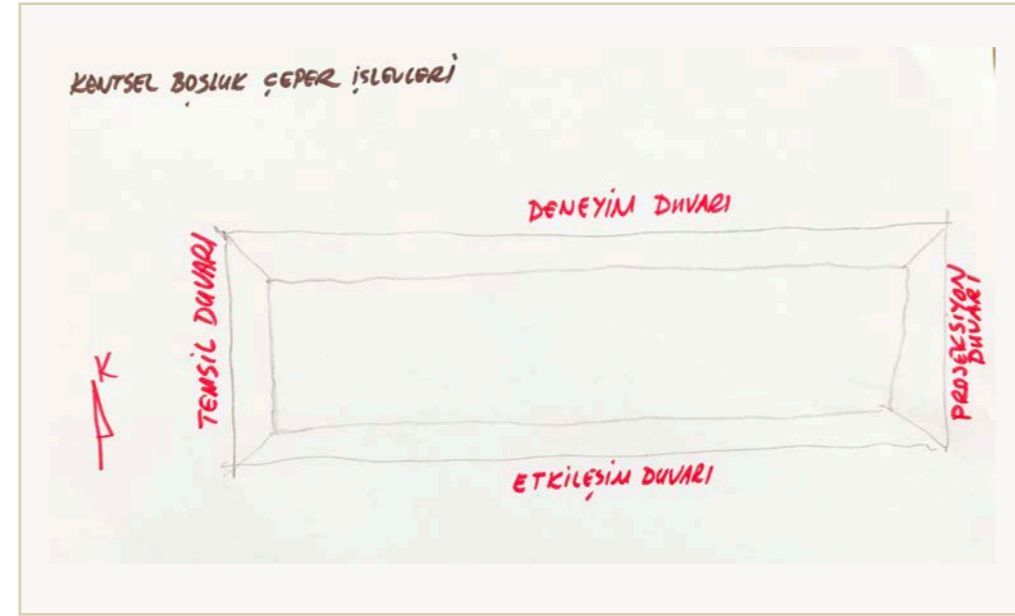 KENTSEL BOŞLUK ÇEPER İŞLEVLERİ
DENEYİM DUVARI
TEMSİL DUVARI
PROJEKSİYON
DUVARI
K
ETKİLEŞİM DUVARI